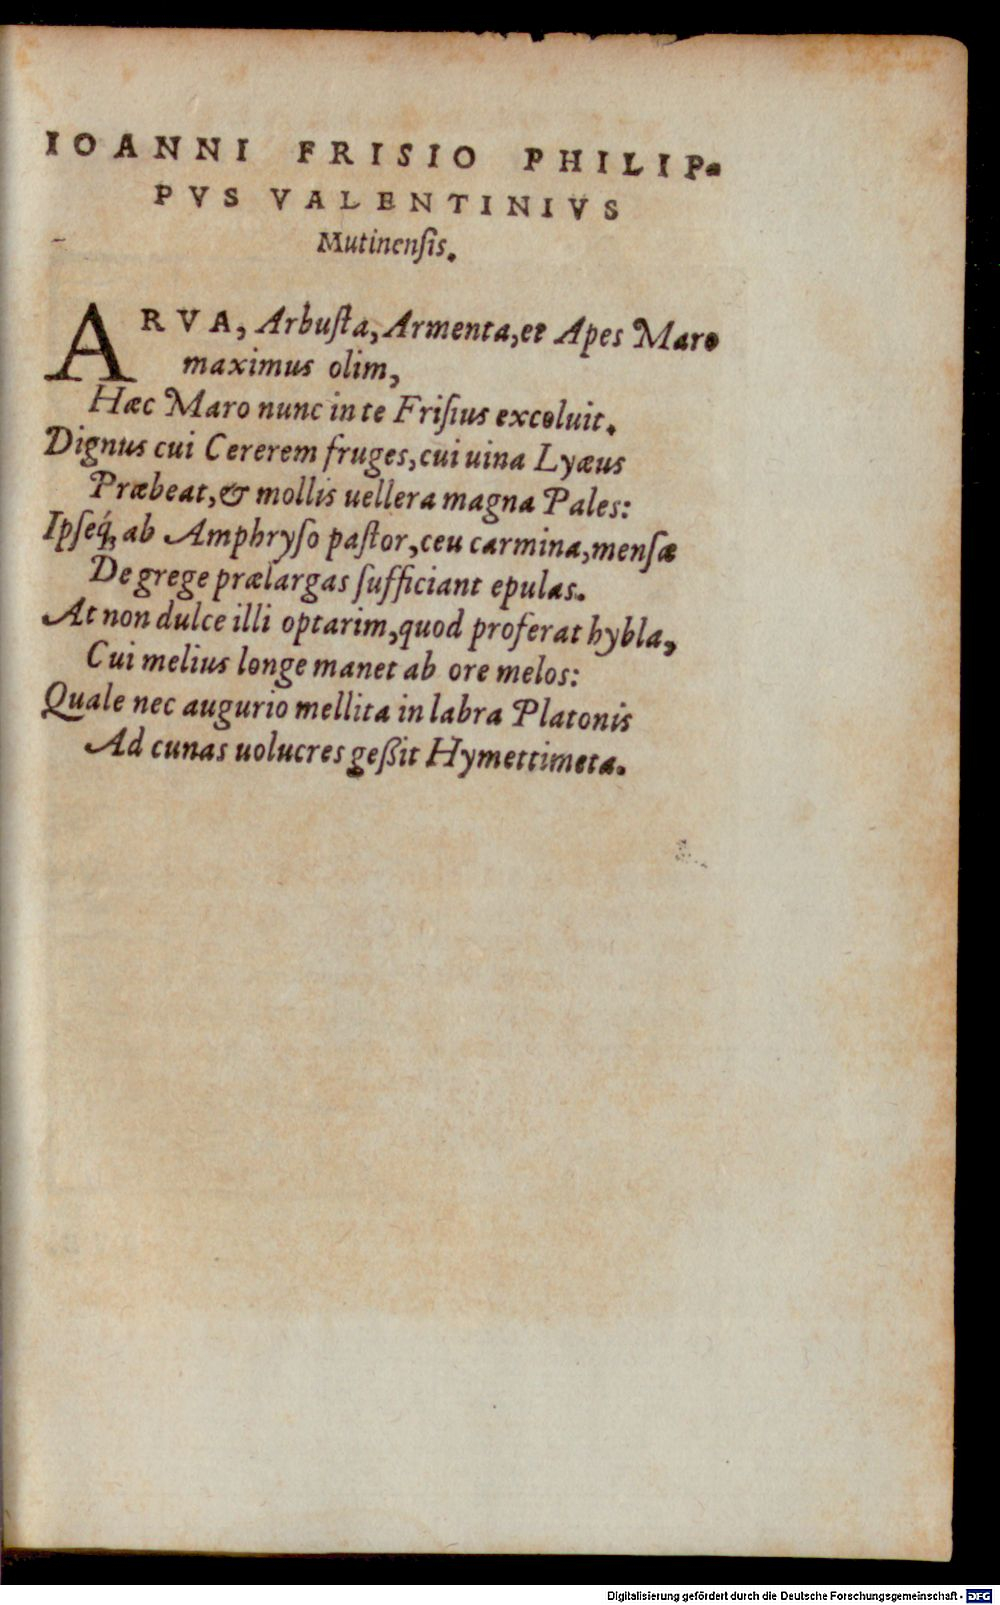 IOANNI FRISIO PHILIP-
PVS VALENTINIVS
Mutinensis.
ARVA, Arbuſta, Armenta, et Apes Maro
maximus olim,
Hæc Maro nunc in te Friſius excoluit.
Dignus cui Cererem fruges, cui uina Lyæus
Præbeat, & mollis uellera magna Pales:
Ipſeq́; ab Amphryſo paſtor, ceu carmina, menſæ
De grege prælargas ſufficiant epulas.
At non dulce illi optarim, quod proferat hybla,
Cui melius longe manet ab ore melos:
Quale nec augurio mellita in labra Platonis
Ad cunas uolucres geßit Hymettimeta.
Digitalisierung gefördert durch die Deutsche Forschungsgemeinschaft - DFG